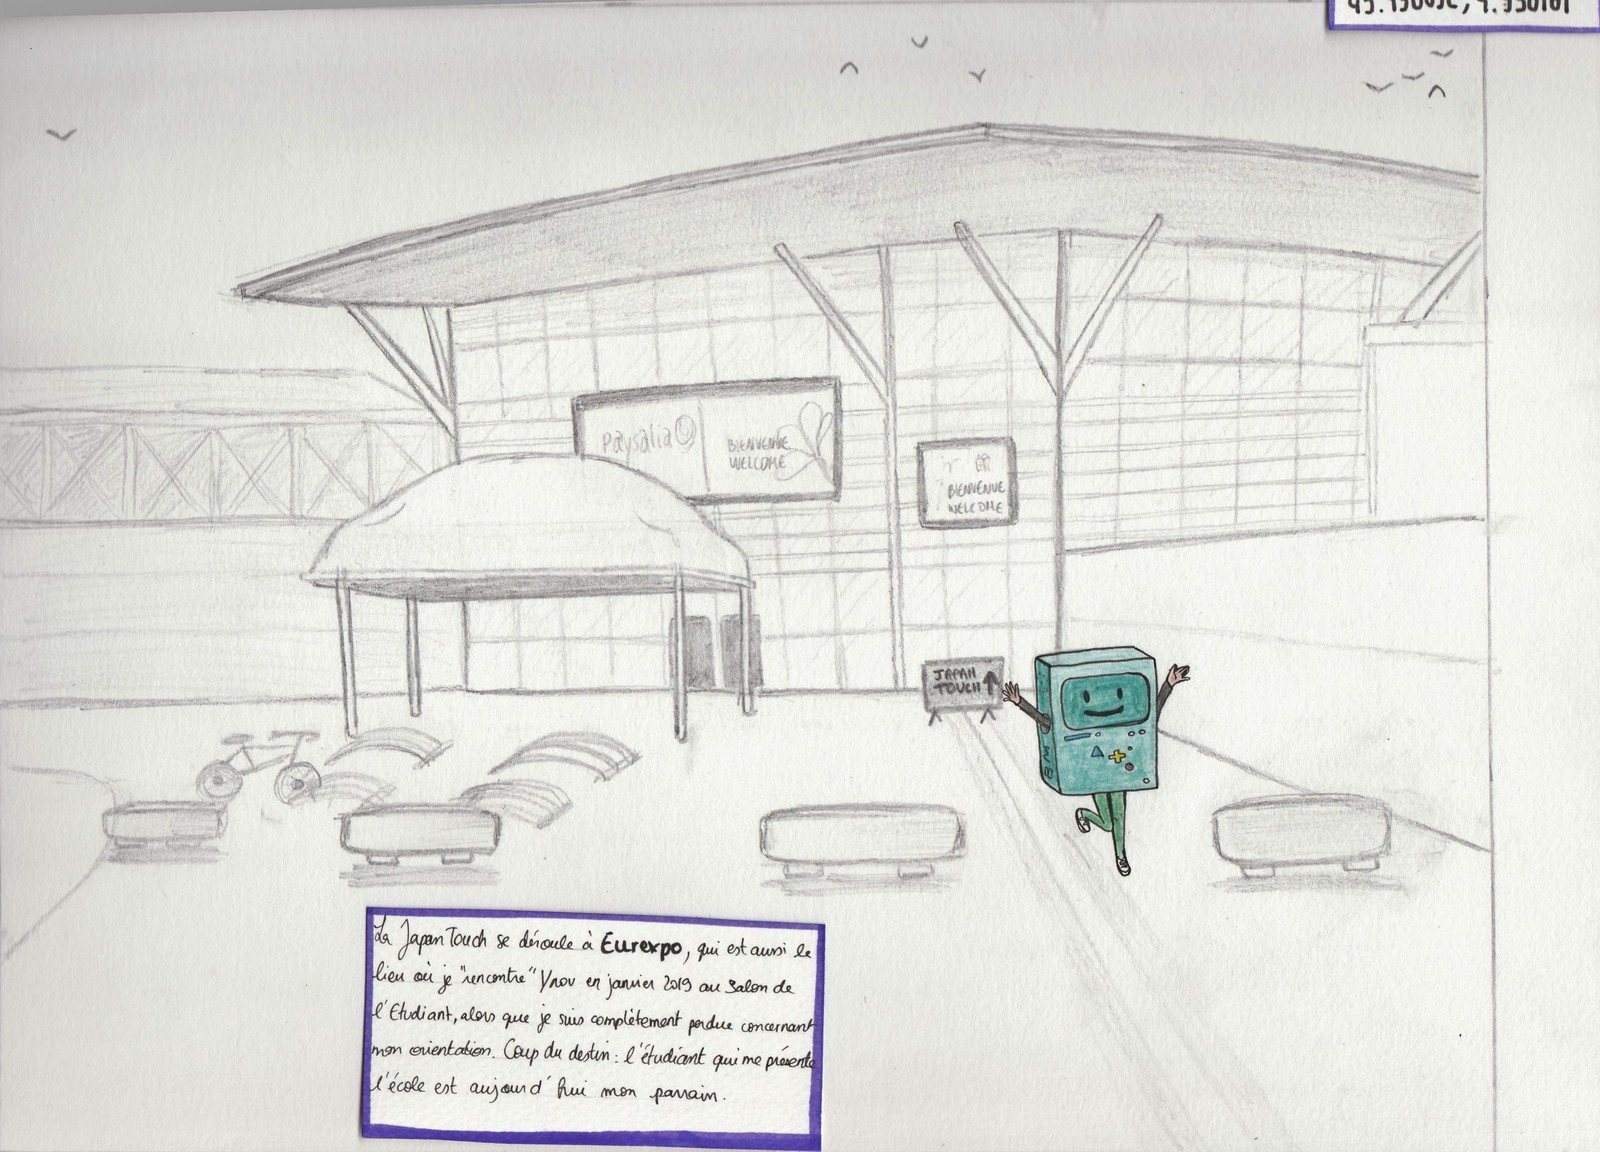 Paysalia
BIENVENUE
WELCOME
BIENVENUE
WELCOME
JAPAN
TOUCH
BMO
La Japan Touch se déroule à Eurexpo, qui est aussi le
lieu où je "rencontre" Ynov en janvier 2019 au Salon de
l'Etudiant, alors que je suis complètement perdue concernant
mon orientation. Coup du destin : l'étudiant qui me présente
l'école est aujourd'hui mon parrain.